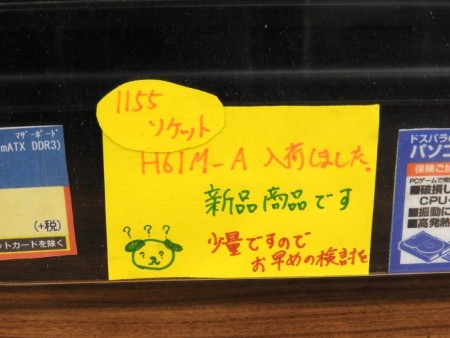 1155
ソケット
H61M-A 入荷しました。
新品商品です
???
??
少量ですので
お早めの検討を
マザーボード
mATX DDR3)
(+税)
ットカードを除く
ドスパラの
パソコン
保険ご
PCゲームで
■破損し
CPU・
■振動に
■高発熱